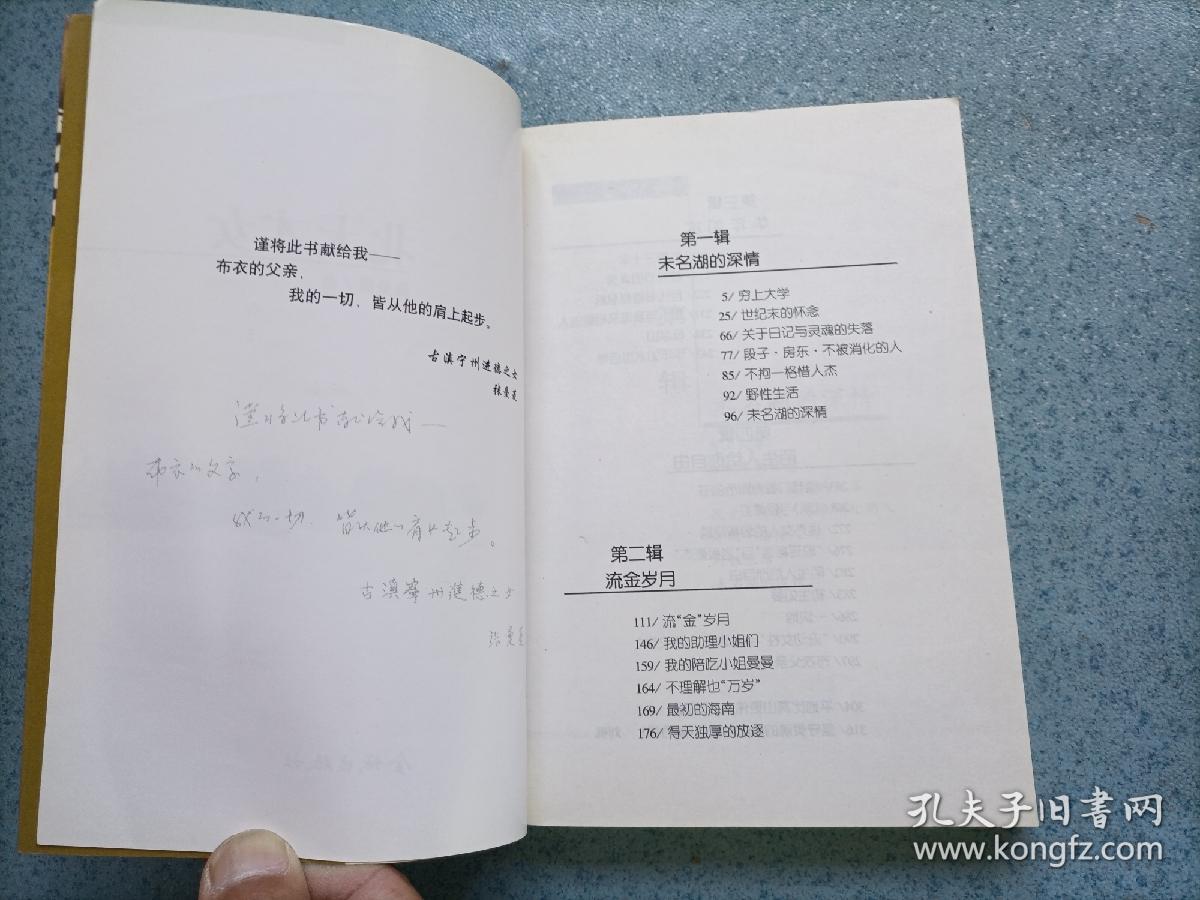 谨将此书献给我——
布衣的父亲，
我的一切，皆从他的肩上起步。
古滇宁州进德之女
张曼菱
谨将此书献给我—
布衣的父亲，
我的一切，皆从他的肩上起步。
古滇寧州進德之女
张曼菱
第一辑
未名湖的深情
5/ 穷上大学
25/ 世纪末的怀念
66/ 关于日记与灵魂的失落
77/ 段子·房东·不被消化的人
85/ 不拘一格惜人杰
92/ 野性生活
96/ 未名湖的深情
第二辑
流金岁月
111/ 流“金”岁月
146/ 我的助理小姐们
159/ 我的陪吃小姐曼曼
164/ 不理解也“万岁”
169/ 最初的海南
176/ 得天独厚的放逐
孔夫子旧书网
www.kongfz.com